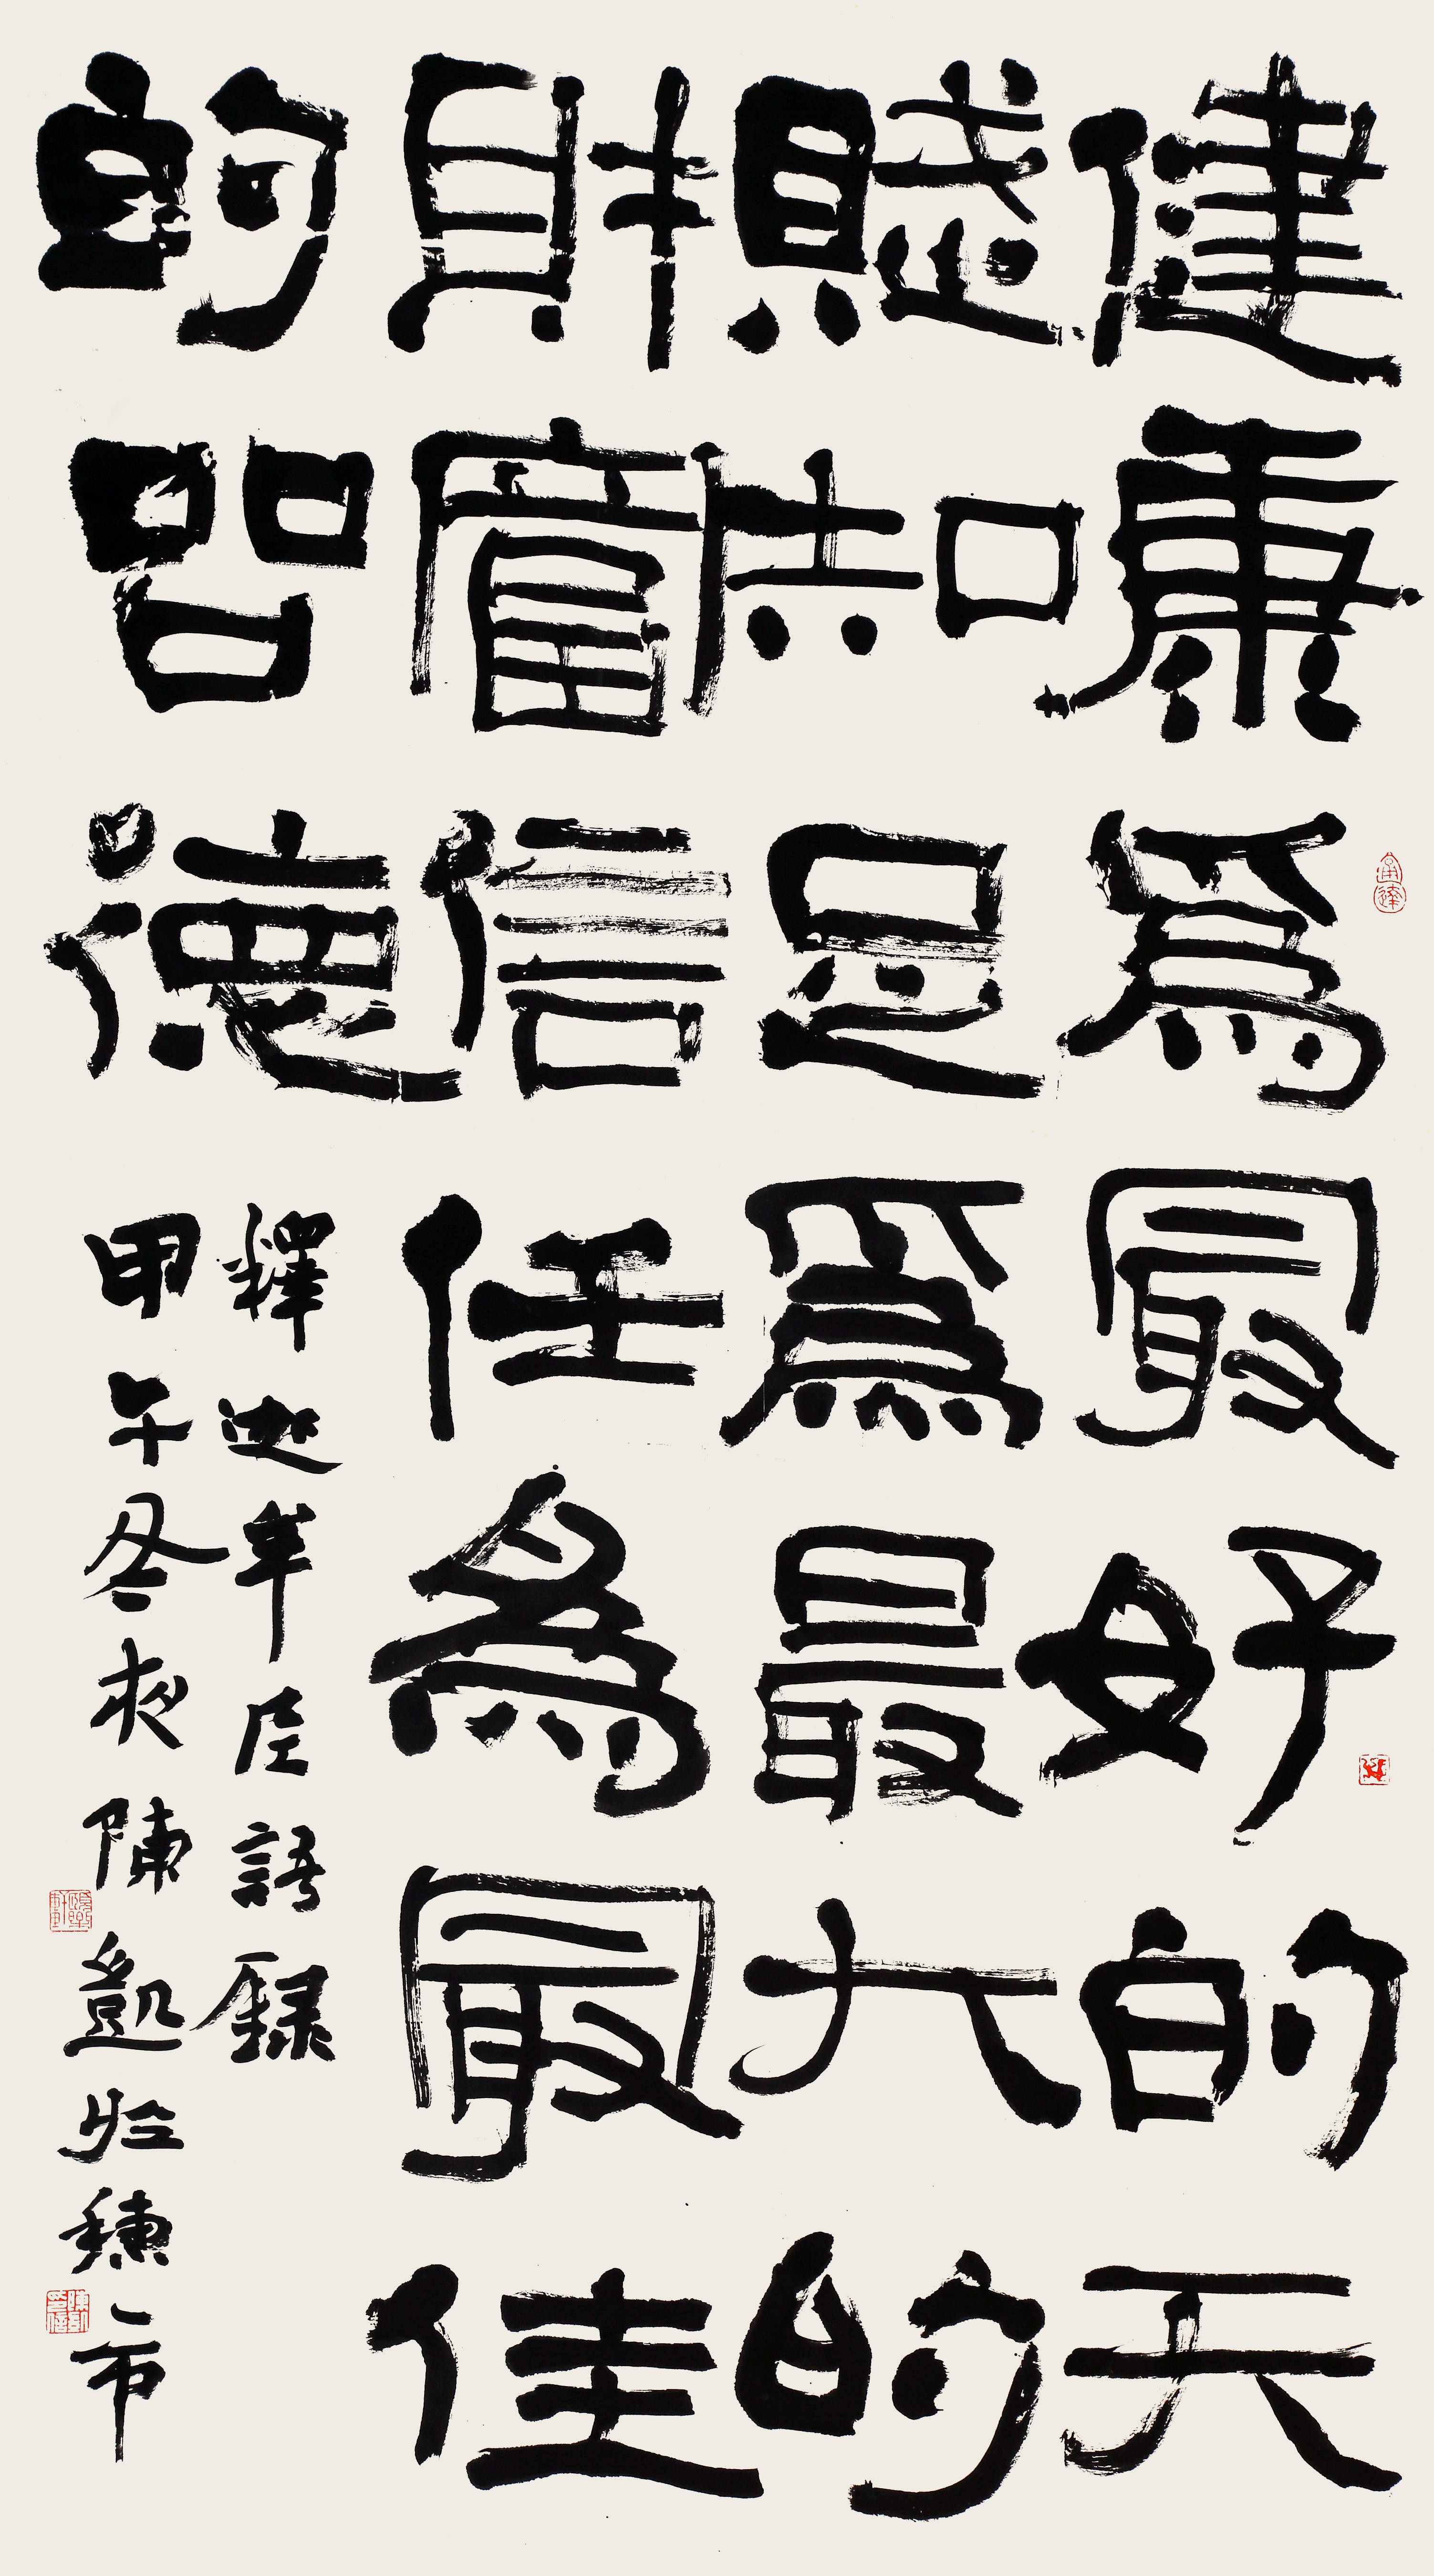 健康爲最好的天
賦知足爲最大的
財富信任爲最佳
的品德
釋迦牟尼語録
甲午冬夜陳凱於穗市
通達